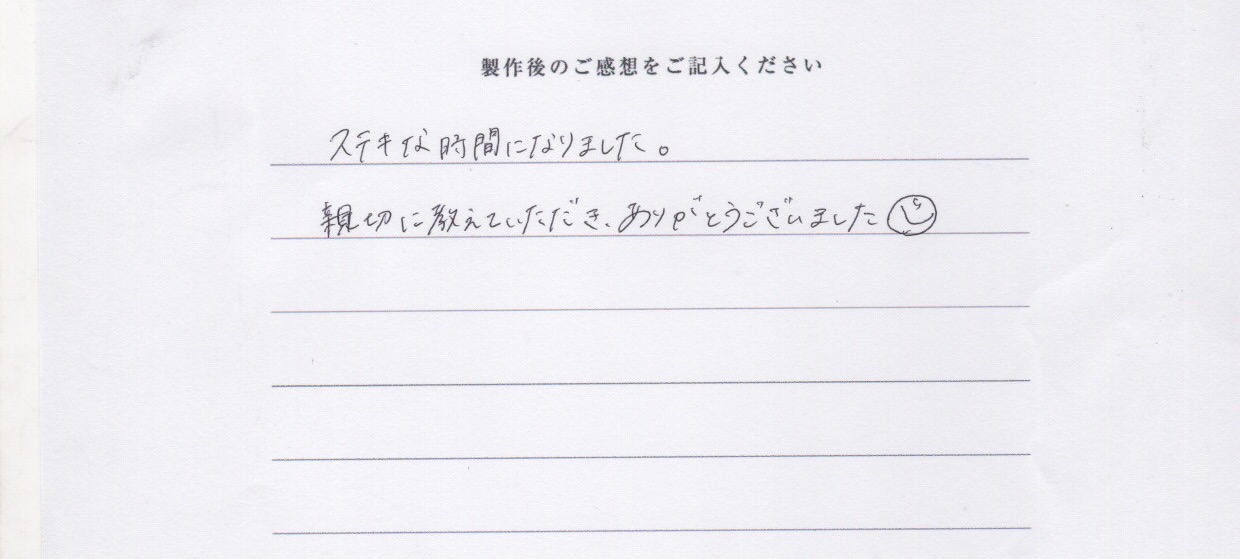 製作後のご感想をご記入ください
ステキな時間になりました。
親切に教えていただき、ありがとうございました